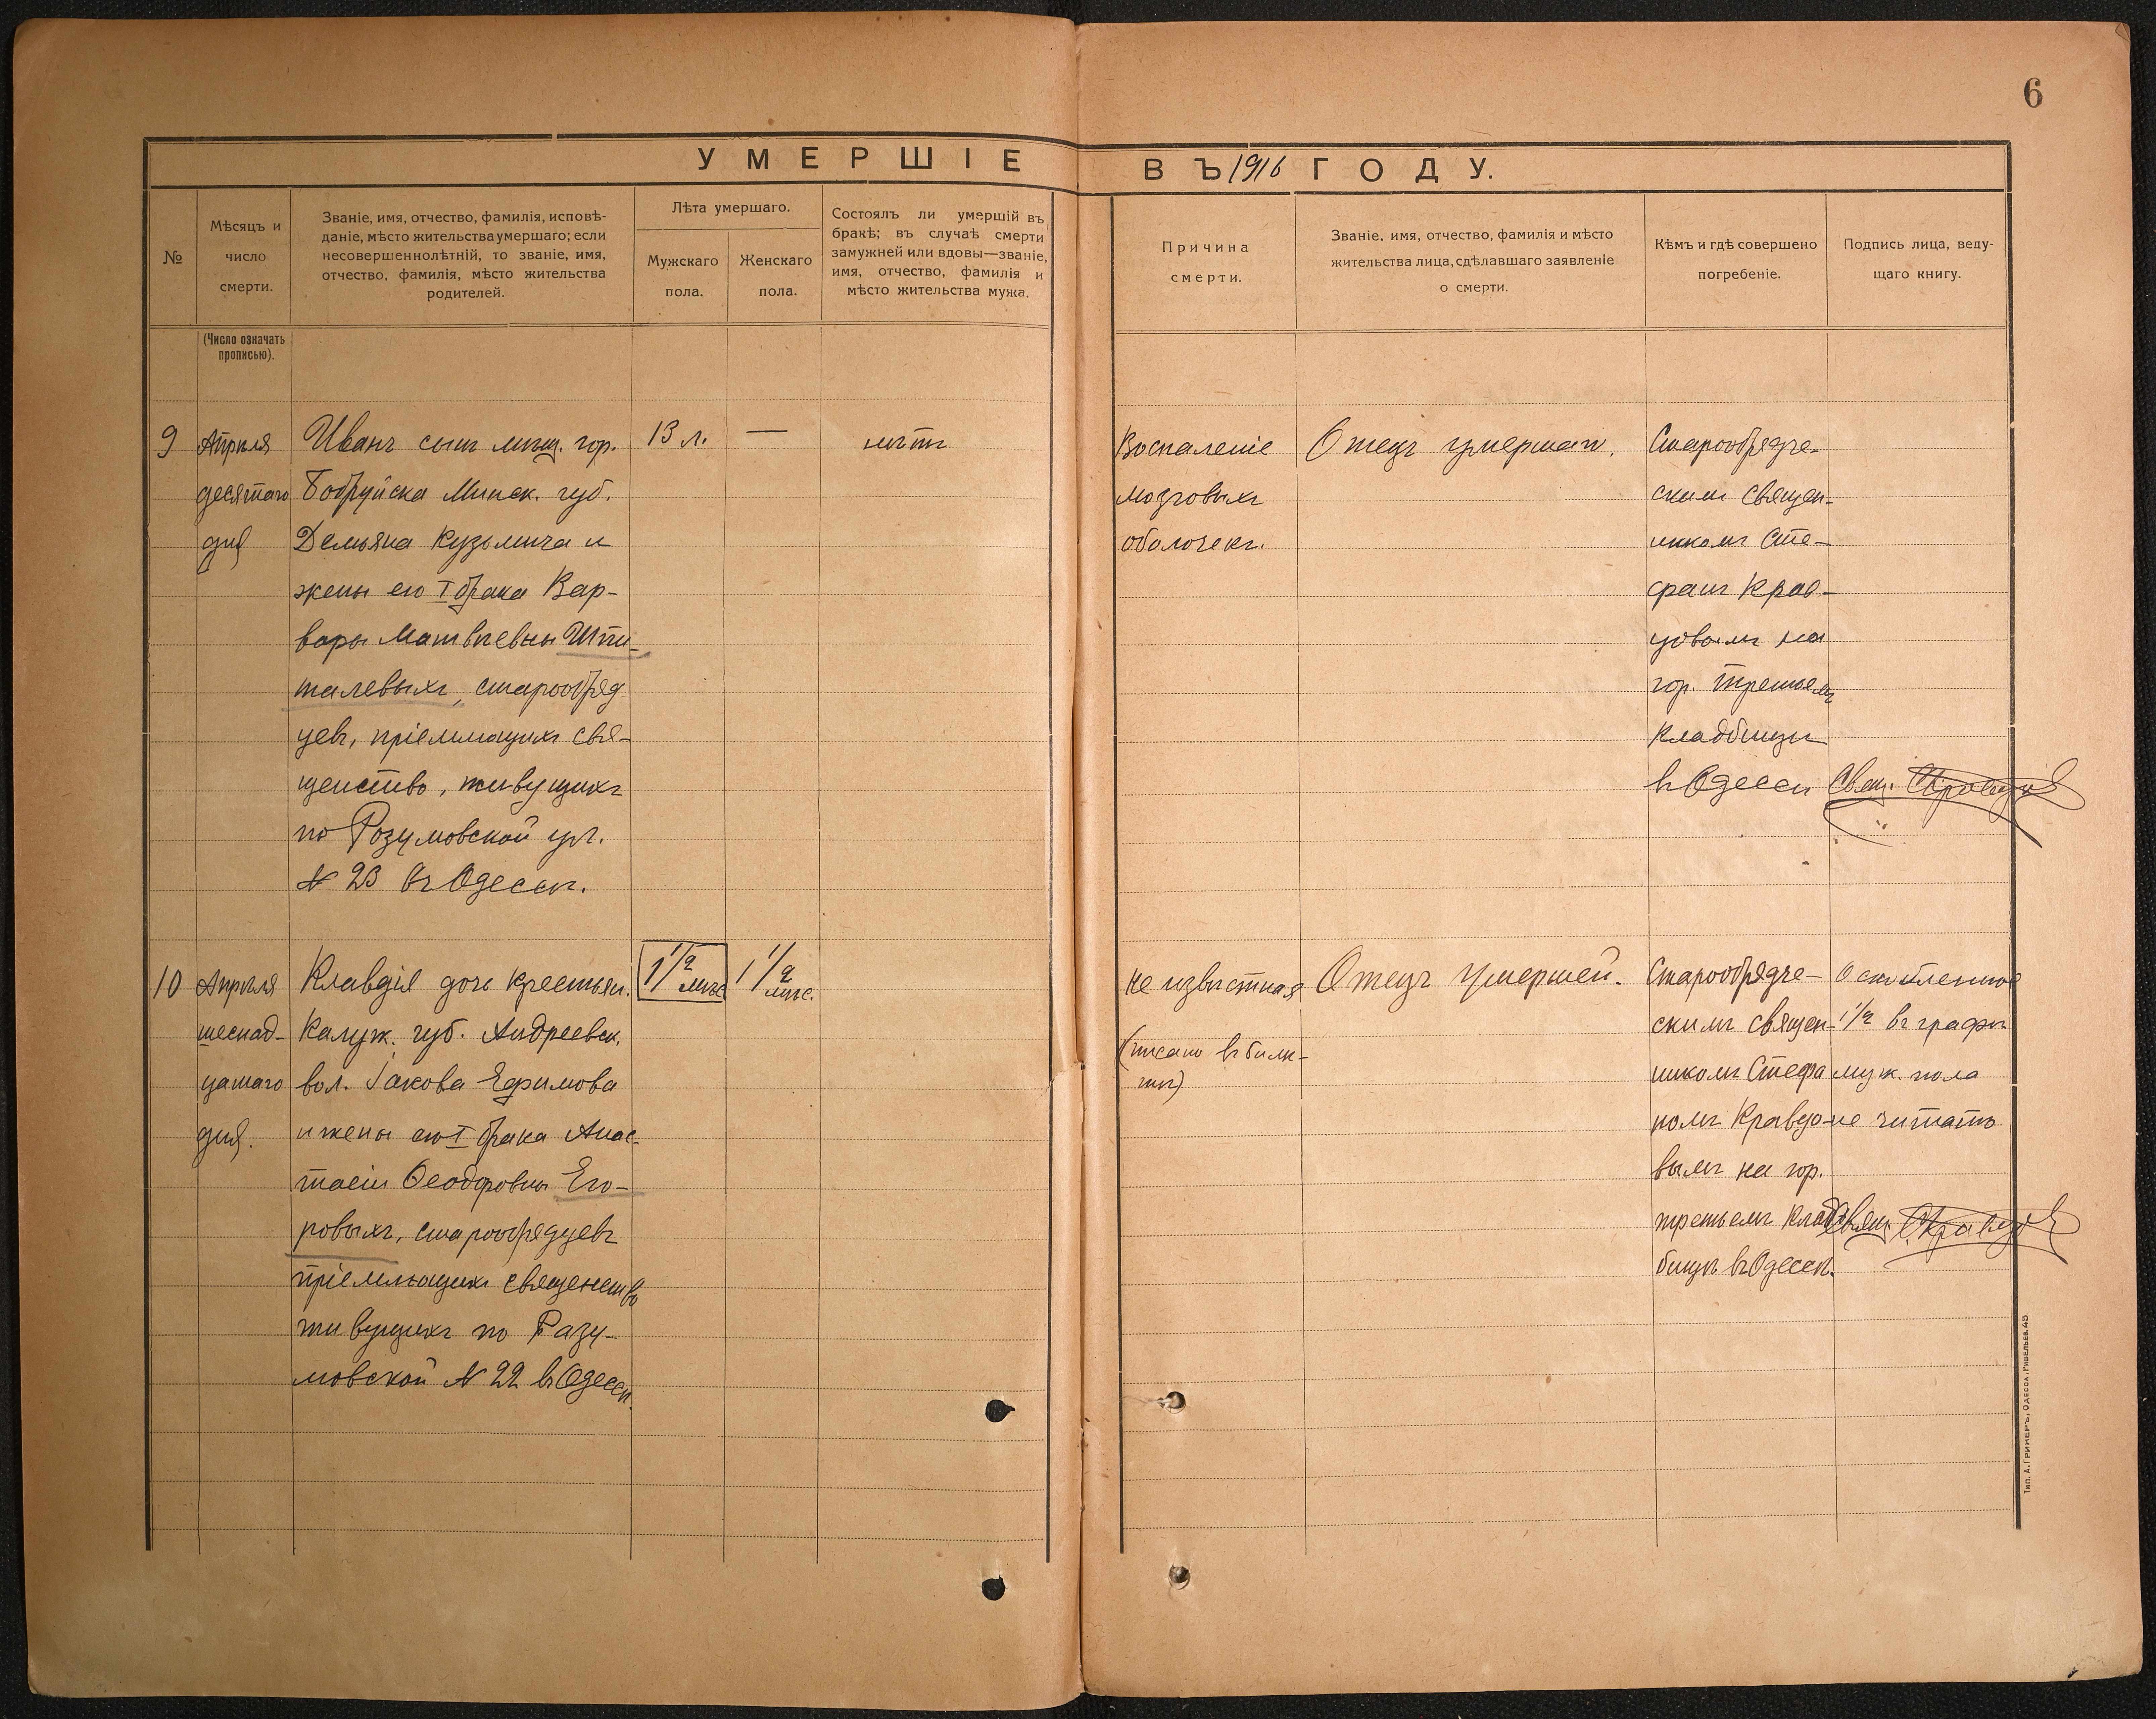 6
УМЕРШІЕ ВЪ 1916 ГОДУ.
№
Мѣсяцъ и
число
смерти.
Званіе, имя, отчество, фамилія, исповѣ-
даніе, мѣсто жительства умершаго; если
несовершеннолѣтній, то званіе, имя,
отчество, фамилія, мѣсто жительства
родителей.
Лѣта умершаго.
Мужскаго
пола.
Женскаго
пола.
Состоялъ ли умершій въ
бракѣ; въ случаѣ смерти
замужней или вдовы—званіе,
имя, отчество, фамилія и
мѣсто жительства мужа.
Причина
смерти.
Званіе, имя, отчество, фамилія и мѣсто
жительства лица, сдѣлавшаго заявленіе
о смерти.
Кѣмъ и гдѣ совершено
погребеніе.
Подпись лица, веду-
щаго книгу.
(Число означать
прописью).
9
Апрѣля
десятаго
дня
Иванъ сынъ мѣщ. гор.
Бобруйска Минск. губ.
Демьяна Кузьмича и
жены его I брака Вар-
вары Матвѣевны Шпи-
талевыхъ, старообряд
цевъ, пріемлющихъ свя-
щенство, живущихъ
по Розумовской ул.
№ 23 въ Одессѣ.
13 л.
—
нѣтъ
Воспаленіе
мозговыхъ
оболочекъ.
Отецъ умершаго.
Старообрядче-
скимъ священ-
никомъ Сте-
фаномъ Крав-
цовымъ на
гор. третьемъ
кладбищѣ
въ Одессѣ
Свящ. С. Кравцов
10
Апрѣля
шеснад-
цатаго
дня.
Клавдія дочь крестьян.
Калуж. губ. Андреевск.
вол. Іакова Ефимова
и жены его I брака Анас-
тасіи Ѳеодоровны Его-
ровыхъ, старообрядцевъ
пріемлющихъ священство
живущихъ по Разу-
мовской № 22 въ Одессѣ.
1 1/2
мѣс.
1 1/2
мѣс.
Не извѣстная
(писано въ биле-
тѣ)
Отецъ умершей.
Старообрядче-
скимъ священ-
никомъ Стефа
номъ Кравцо-
вымъ на гор.
третьемъ клад-
бищѣ въ Одессѣ.
Оскобленное
1/2 въ графѣ
муж. пола
не читать
Свящ. С. Кравцов
Тип. А. Гримеръ, Одесса, Ришельев. 45.